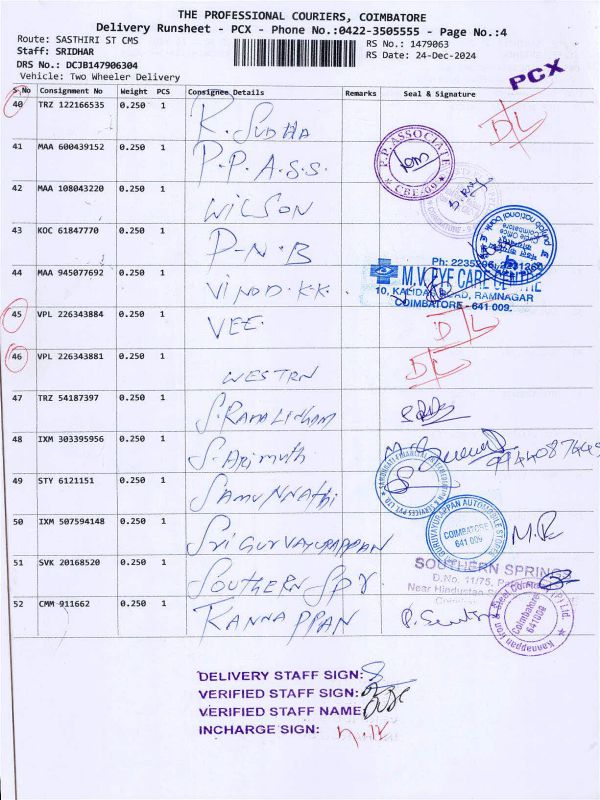 THE PROFESSIONAL COURIERS, COIMBATORE
Delivery Runsheet - PCX - Phone No.:0422-3505555 - Page No.:4
Route: SASTHIRI ST CMS
RS No.: 1479063
Staff: SRIDHAR
RS Date: 24-Dec-2024
DRS No.: DCJB147906304
Vehicle: Two Wheeler Delivery
PCX
S.No Consignment No Weight PCS Consignee Details Remarks Seal & Signature
40 TRZ 122166535 0.250 1 K. SUDHA DL
41 MAA 600439152 0.250 1 P.P.A.S.S. P.P. ASSOCIATE CBE-09
42 MAA 108043220 0.250 1 WILSON
43 KOC 61847770 0.250 1 P-N-B punjab national bank Circle Office Coimbatore
44 MAA 945077692 0.250 1 VINOD.K.K.
Ph: 2235296, 2231260
M.V. EYE CARE CENTRE
10, KALIDAS ROAD, RAMNAGAR
COIMBATORE - 641 009.
45 VPL 226343884 0.250 1 VEE. DL
46 VPL 226343881 0.250 1 WESTRN DL
47 TRZ 54187397 0.250 1 S. RAMALINGAM
48 IXM 303395956 0.250 1 S. Arimuth
49 STY 6121151 0.250 1 Samunnathi
50 IXM 507594148 0.250 1 Sri GURVAYURAPPAN GURUVAYURAPPAN AUTOMOBILE STORES COIMBATORE 641 009
51 SVK 20168520 0.250 1 SOUTHERN SPR
SOUTHERN SPRING
D.No. 11/75,
Near Hindustan
52 CMM 911662 0.250 1 KANNAPPAN Kannappan Iron & Steel Company (P) Ltd. Coimbatore 641009
DELIVERY STAFF SIGN:
VERIFIED STAFF SIGN:
VERIFIED STAFF NAME:
INCHARGE SIGN: